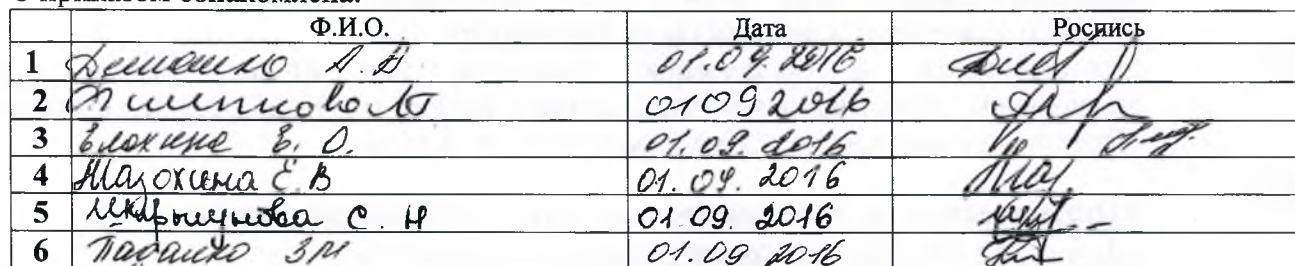 С приказом ознакомлена:
Ф.И.О. Дата Роспись
1 А. Д 01.09.2016
2 01092016
3 Блохина Е. О. 01.09.2016
4 Мазохина Е. В 01.09.2016
5 С. Н 01.09.2016
6 Падалко ЗМ 01.09 2016